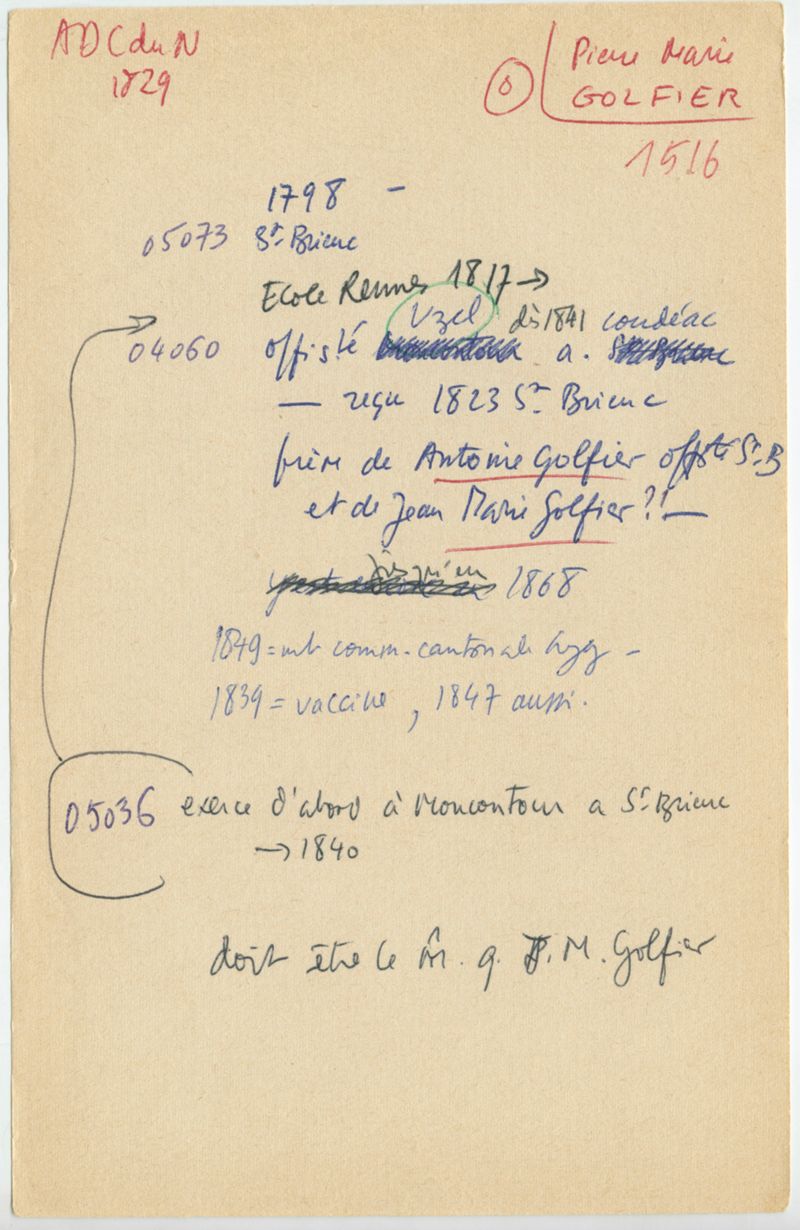 ADCduN
1829
O
Pierre Marie
GOLFIER
1516
1798 –
05073 St-Brieuc
Ecole Rennes 1817 →
Uzel dès 1841 Loudéac
04060 offis. té a.
— reçu 1823 St Brieuc
frère de Antoine Golfier offté St-B
et de Jean Marie Golfier ?! —
jusqu'en 1868
1849 = mb comm. cantonale hyg –
1839 = vaccine, 1847 aussi.
05036 exerce d'abord à Moncontour a St-Brieuc
→ 1840
doit être le m̂. q. M. Golfier